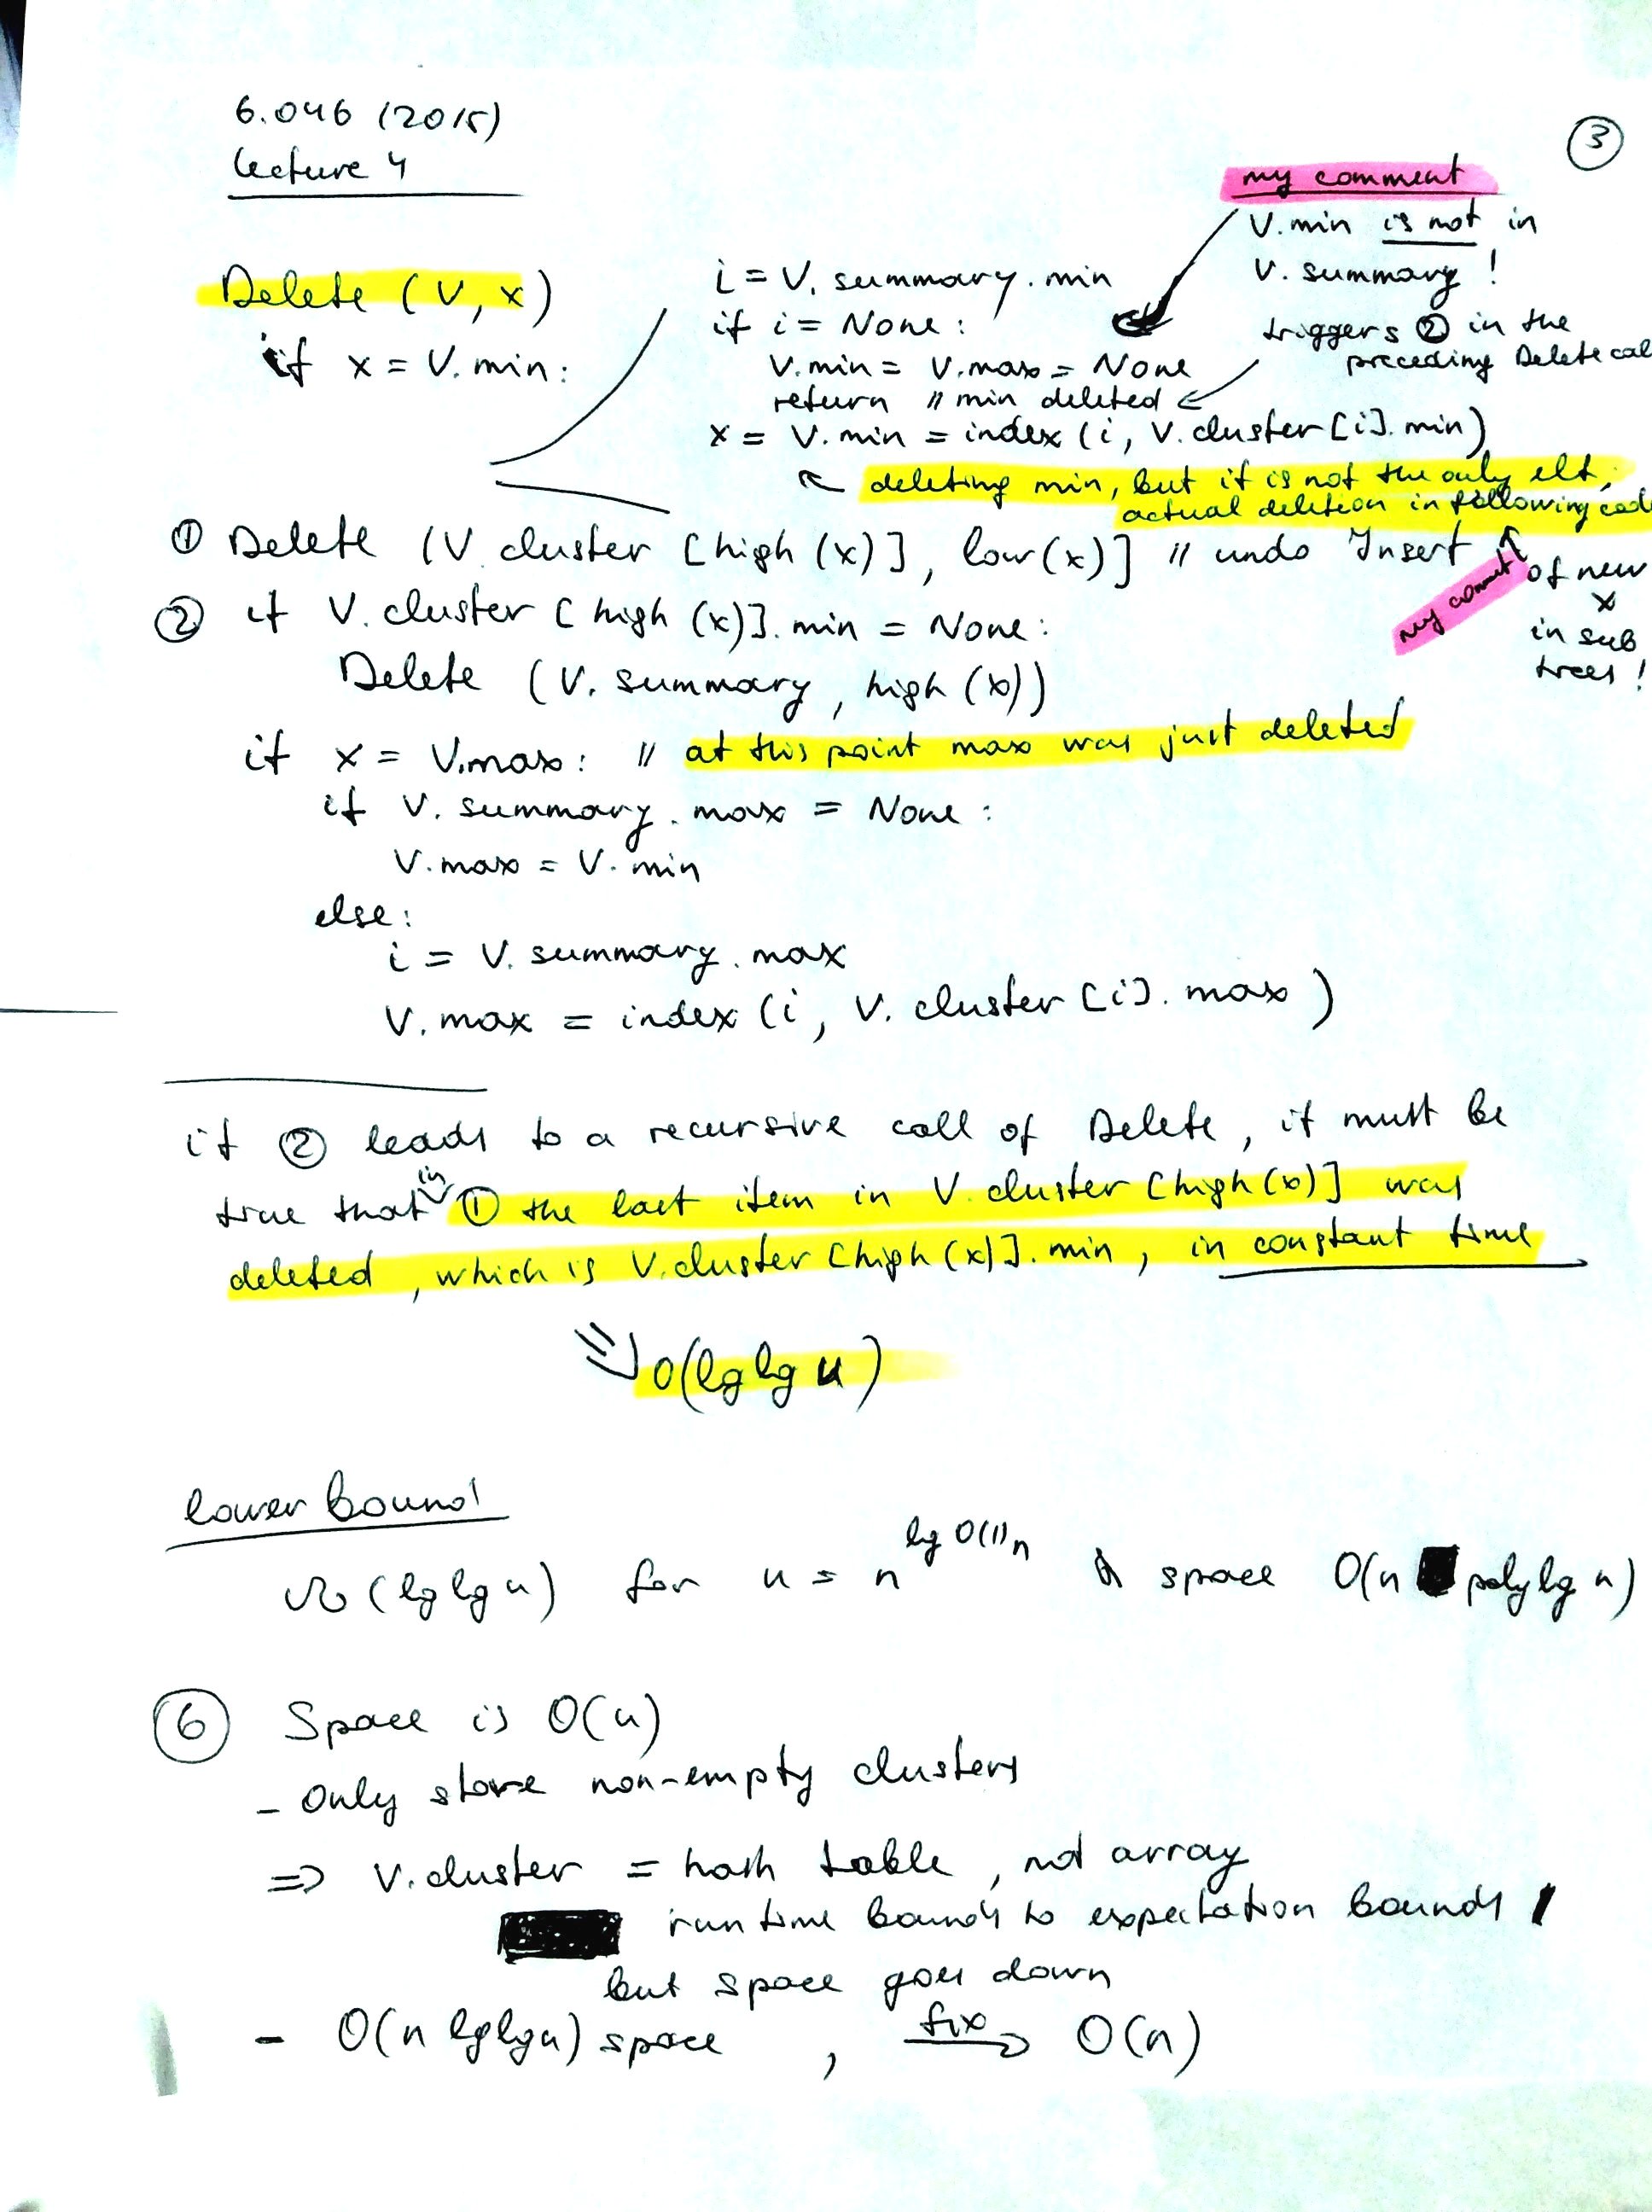 6.046 (2015)
lecture 4
3
my comment
V.min is not in
V. summary !
triggers ② in the
preceding Delete cal
Delete (V, x)
if x = V.min:
i = V. summary. min
if i = None:
V.min = V.max = None
return // min deleted
x = V.min = index (i, V.cluster [i]. min)
deleting min, but it is not the only elt,
actual deletion in following cod
① Delete (V. cluster [high (x)], low (x)] // undo Insert
my comment
of new
x
in sub
trees !
② if V. cluster [high (x)]. min = None:
Delete (V. summary, high (x))
if x = V.max: // at this point max was just deleted
if V. summary. max = None :
V.max = V. min
else:
i = V. summary. max
V. max = index (i, V. cluster [i]. max )
if ② leads to a recursive call of Delete, it must be
true that in ① the last item in V. cluster [high (x)] was
deleted, which is V.cluster [high (x)]. min, in constant time
⇒ O(lg lg u)
lower bound
Ω (lg lg u) for u = n^{lg O(1) n} & space O(n poly lg n)
⑥ Space is O(u)
- Only store non-empty clusters
⇒ V. cluster = hash table, not array
run time bounds to expectation bounds
but space goes down
- O(n lg lg u) space , fix → O(n)